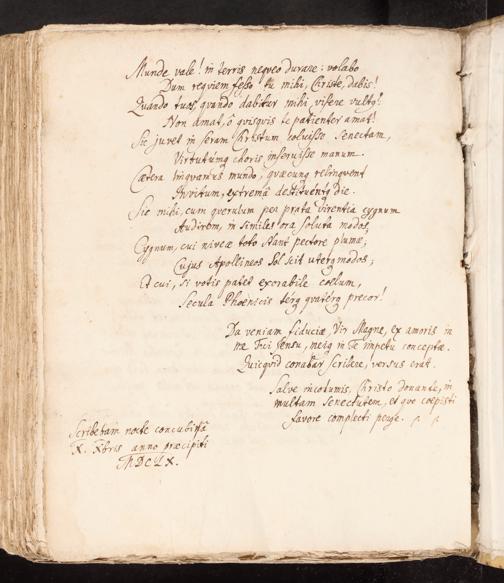 Munde vale! in terris nequeo durare: volabo
Dum requiem fesso tu mihi, Christe, dabis!
Quando tuos, quando dabitur mihi visere vultq!
Non amat, ô quisquis te patienter amat!
Sic juvet in seram Christum coluisse senectam,
Virtutumq choris inseruisse manum.
Cætera linquamus mundo, quæcunq relinquent
Invitum, extremâ destituentq die.
Sic mihi, cum querulum per prata virentia cygnum
Audirem, in similes ora soluta modos,
Cygnum, cui niveæ toto stant pectore plumæ;
Cujus Apollineos Sol scit uterq modos;
Et cui, si votis patet exorabile coelum,
Secula Phoenicis terq quaterq precor!
Da veniam fiduciæ, Vir Magne, ex amoris in
me Tui sensu, meiq in Te impetu conceptæ.
Quicquid conabar scribere, versus erat.
Salve incolumis, Christo donante, in
multam Senectutem, et quo coepisti
favore complecti perge.
Scribebam nocte concubiâ
X. Xbris anno præcipiti
MDCLX.